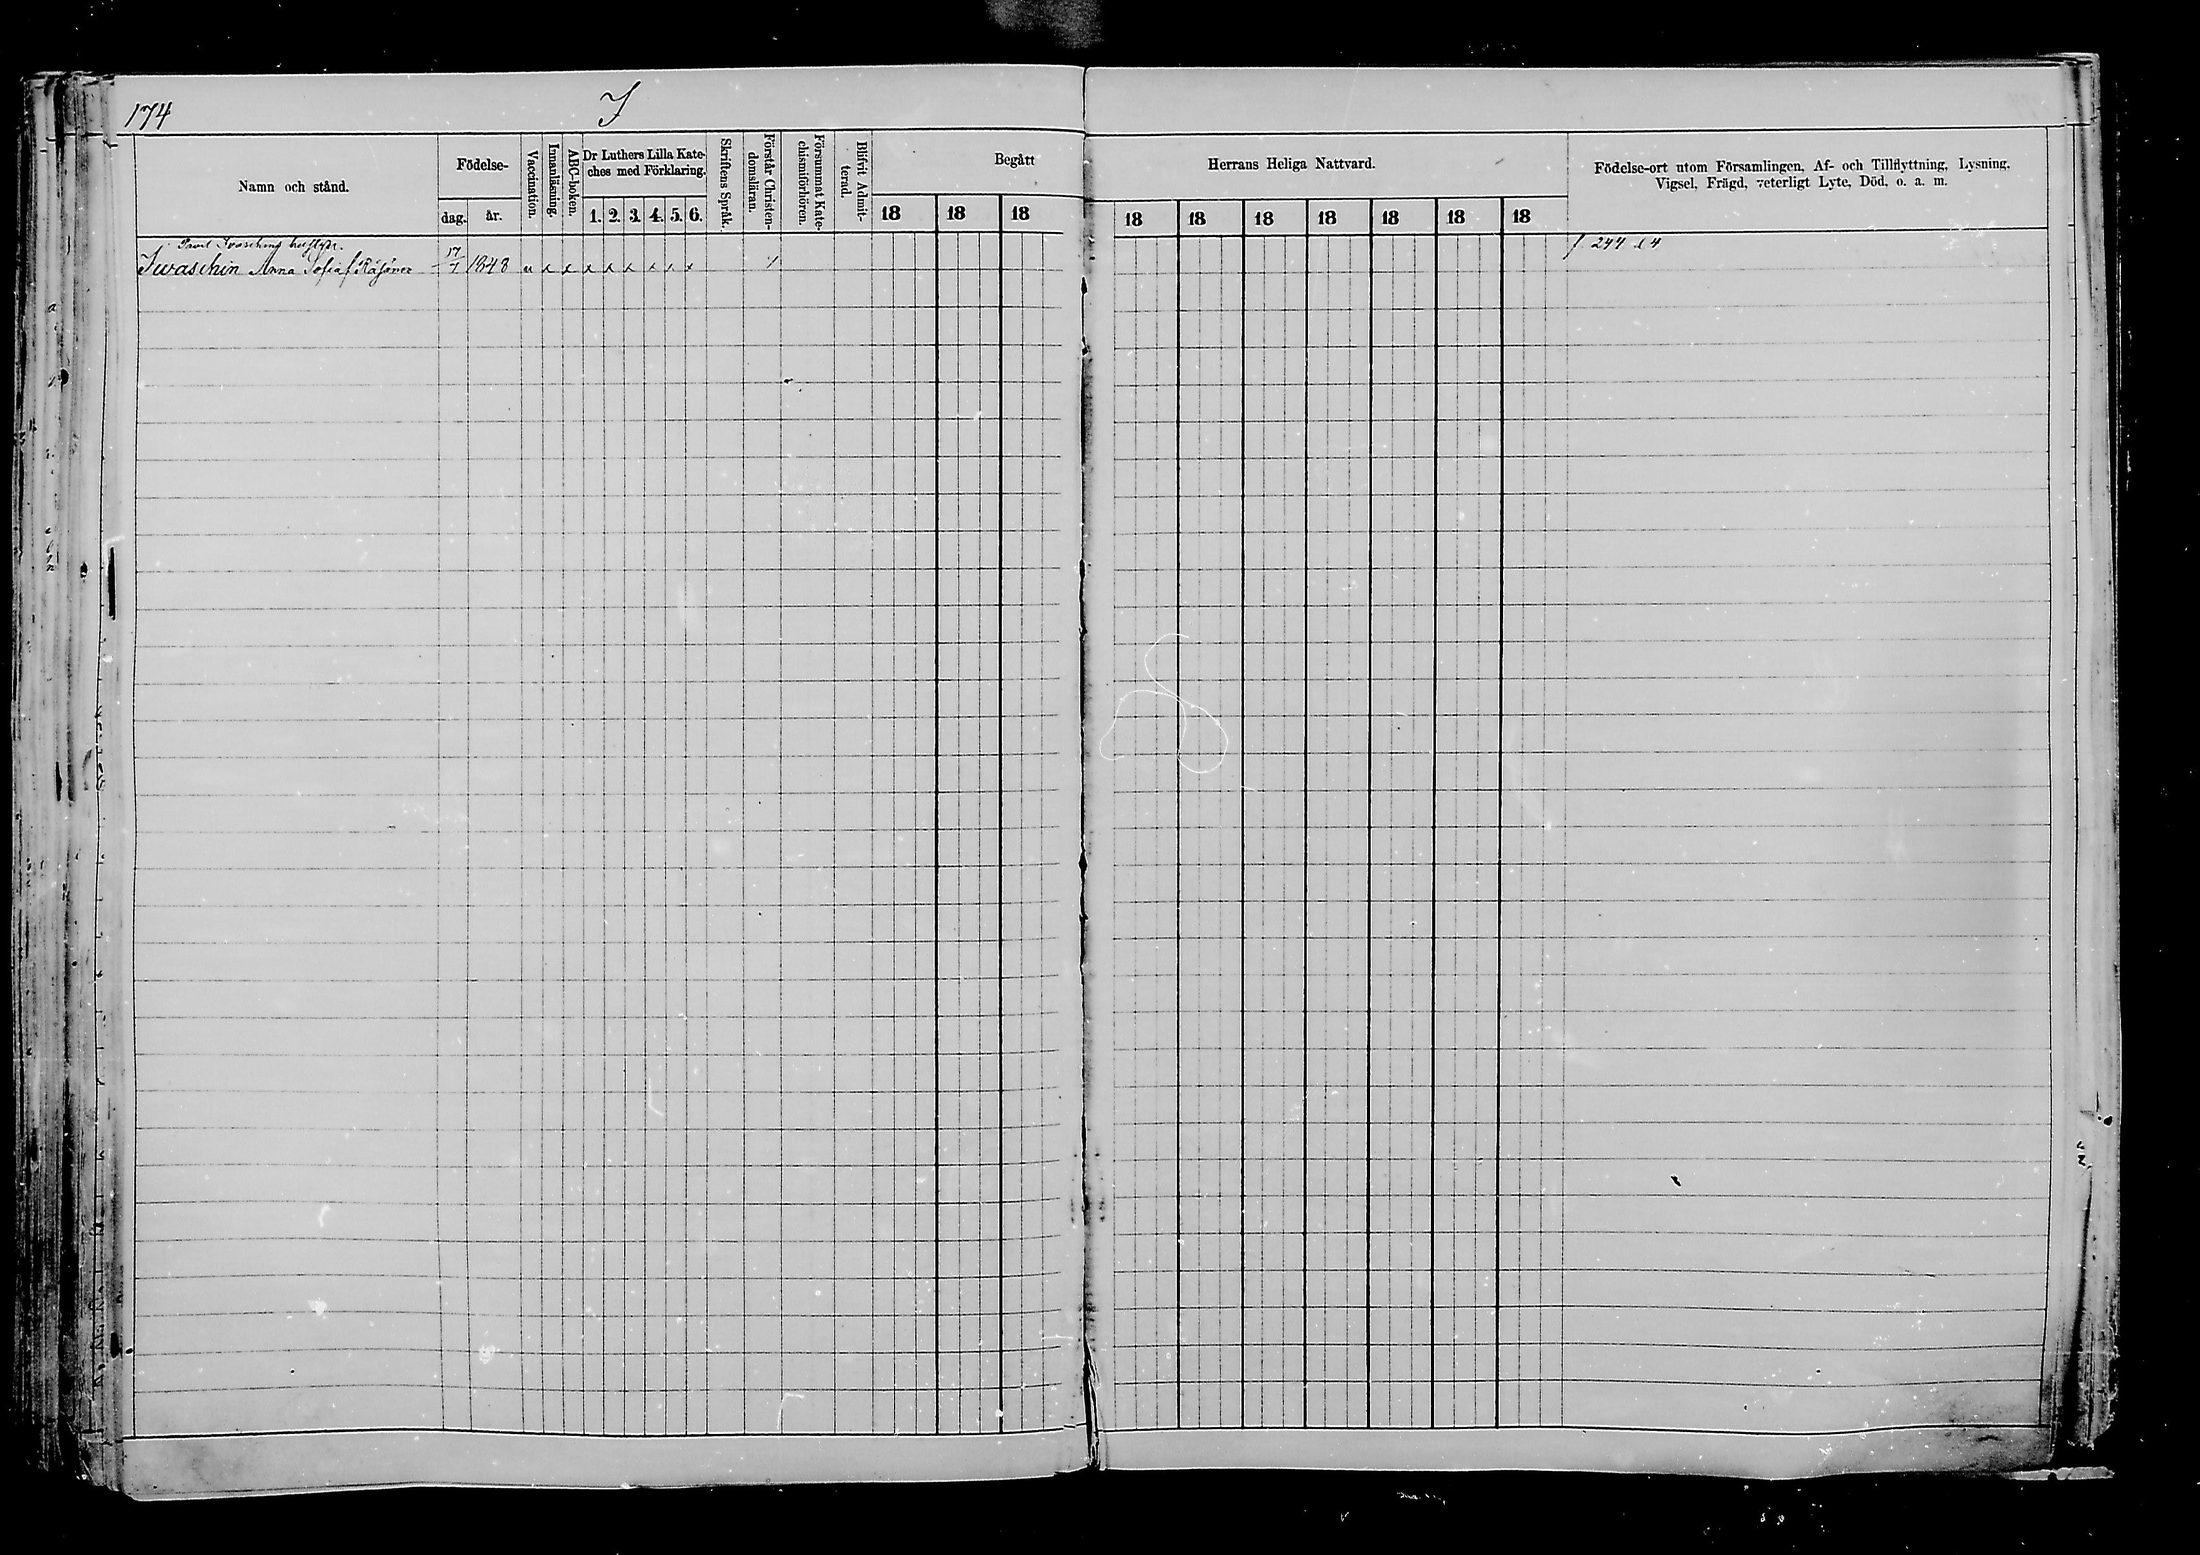 174
I
Namn och stånd.
Födelse-
dag.
år.
Vaccination.
Innanläsning.
ABC-boken.
Dr Luthers Lilla Kate-
ches med Förklaring.
1. 2. 3. 4. 5. 6.
Skriftens Språk.
Förstår Christen-
domsläran.
Försummat Kate-
chismiförhören.
Blifvit Admit-
terad.
Begått
18 18 18
Herrans Heliga Nattvard.
18 18 18 18 18 18 18
Födelse-ort utom Församlingen, Af- och Tillflyttning, Lysning.
Vigsel, Frägd, veterligt Lyte, Död, o. a. m.
hustru.
Iwaschin Anna Sofia f. 17/1 1848 x x x x x x x x x
f 244